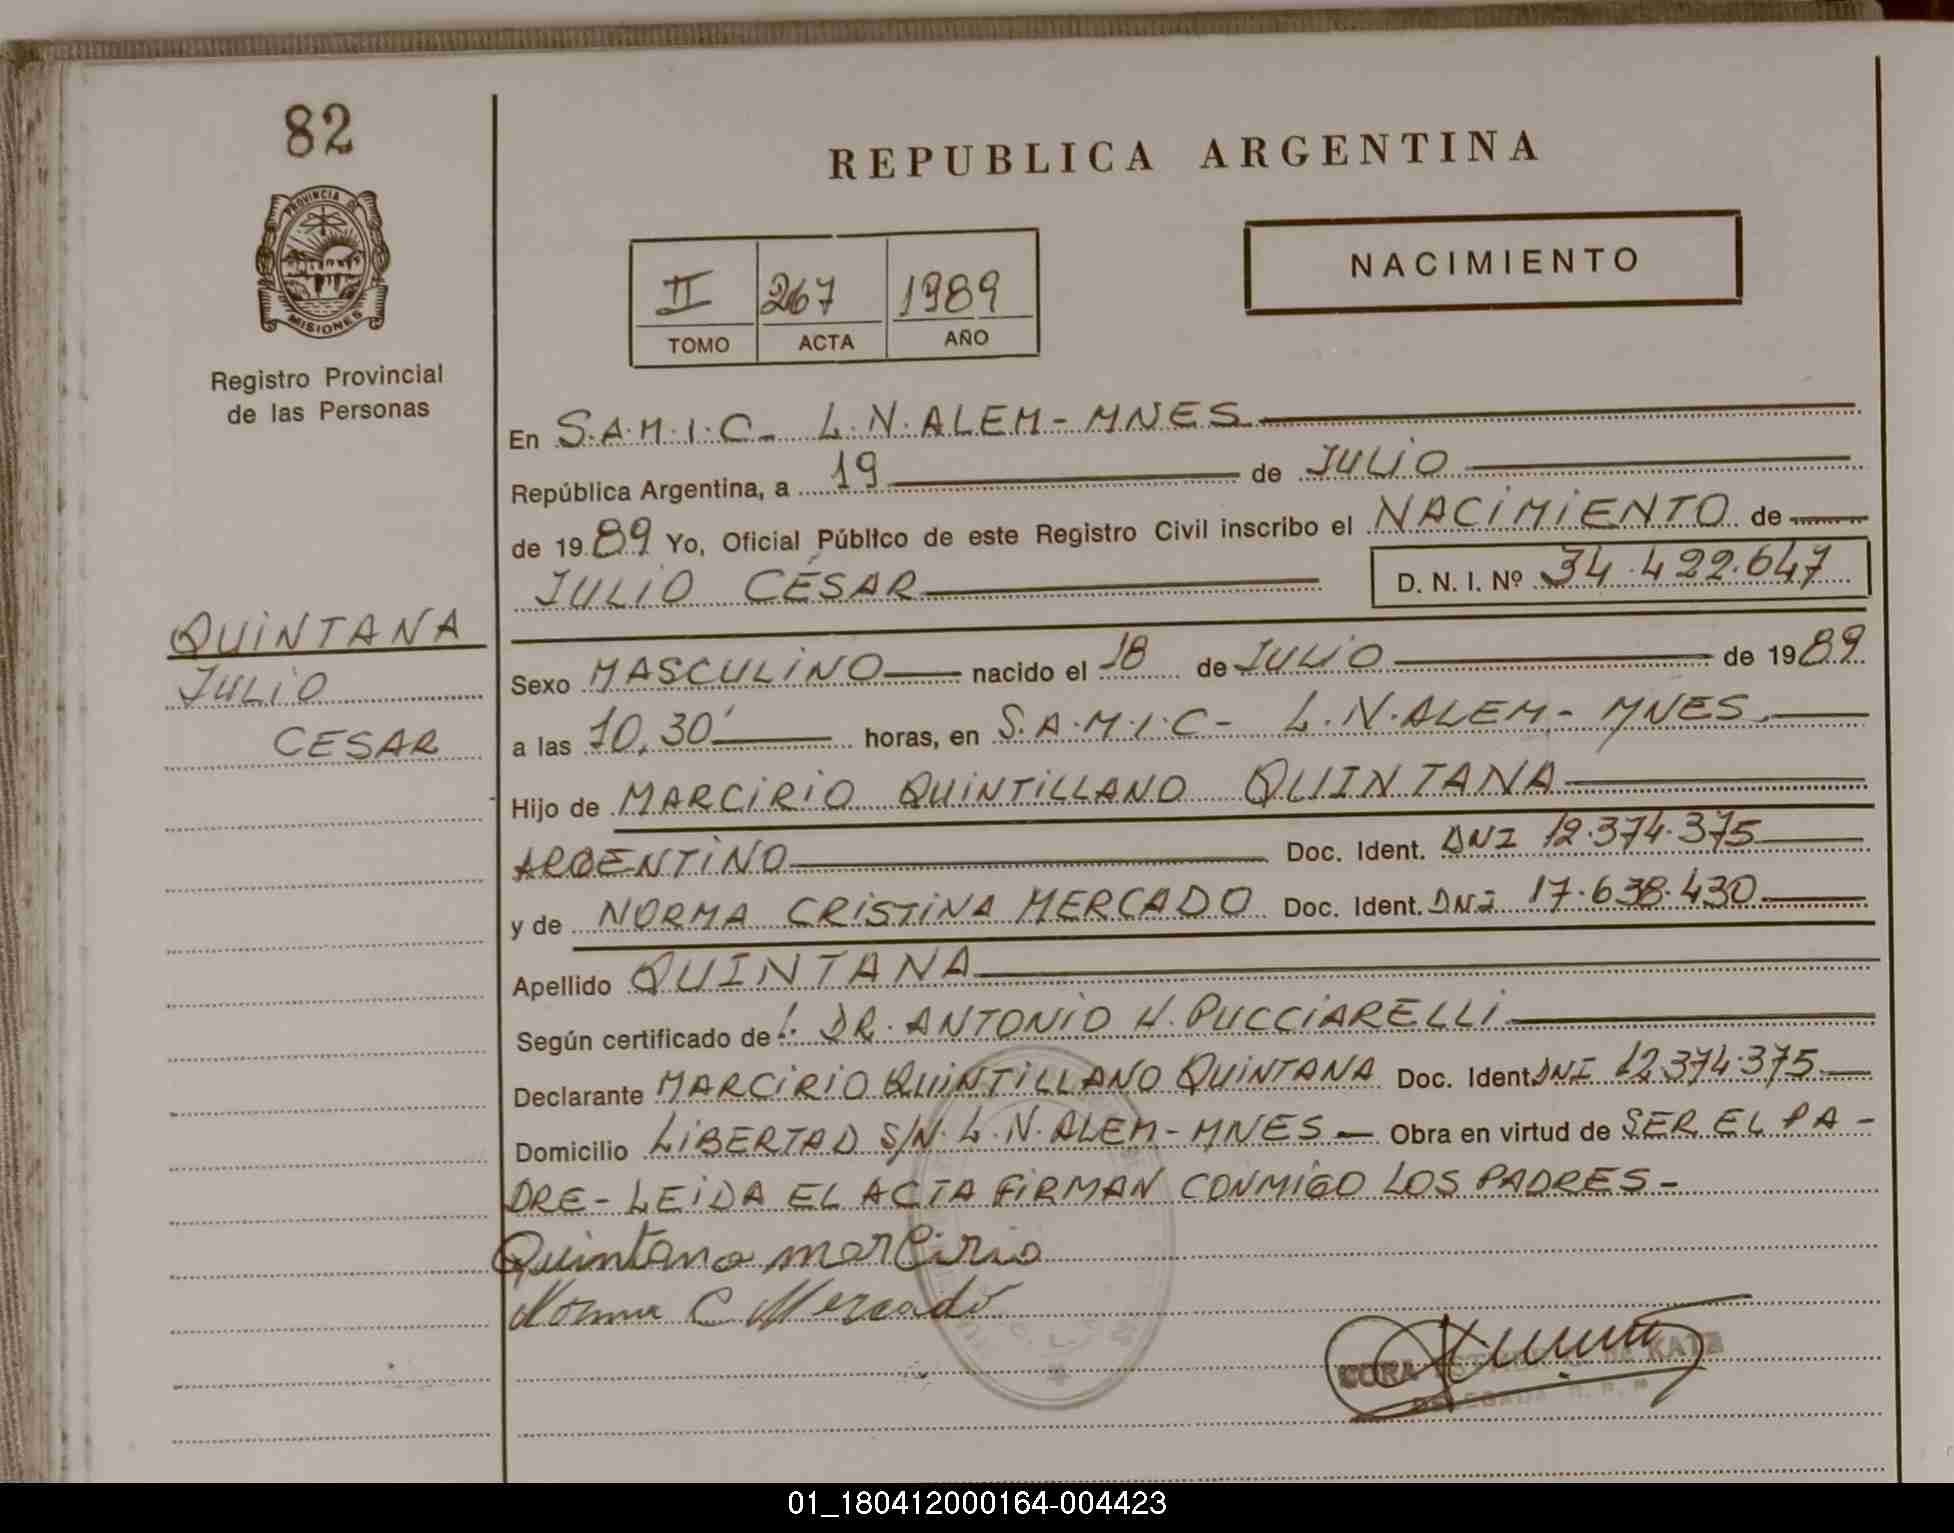 82
PROVINCIA DE
MISIONES
Registro Provincial
de las Personas
QUINTANA
JULIO
CESAR
REPUBLICA ARGENTINA
II 267 1989
TOMO ACTA AÑO
NACIMIENTO
En S.A.M.I.C- L.N.ALEM-MNES
República Argentina, a 19 de JULIO
de 1989 Yo, Oficial Público de este Registro Civil inscribo el NACIMIENTO de
JULIO CÉSAR D. N. I. Nº 34.422.647
Sexo MASCULINO nacido el 18 de JULIO de 1989
a las 10,30' horas, en S.A.M.I.C- L.N.ALEM-MNES.
Hijo de MARCIRIO QUINTILLANO QUINTANA
ARGENTINO Doc. Ident. DNI 12.374.375
y de NORMA CRISTINA MERCADO Doc. Ident. DNI 17.638.430
Apellido QUINTANA
Según certificado de DR. ANTONIO H. PUCCIARELLI
Declarante MARCIRIO QUINTILLANO QUINTANA Doc. Ident DNI 12.374.375
Domicilio LIBERTAD S/N. L.N.ALEM-MNES Obra en virtud de SER EL PA-
DRE-LEIDA EL ACTA FIRMAN CONMIGO LOS PADRES-
Quintana marcirio
Norma C Mercado
KATZ
DELEGADA R. P. P.
01_180412000164-004423